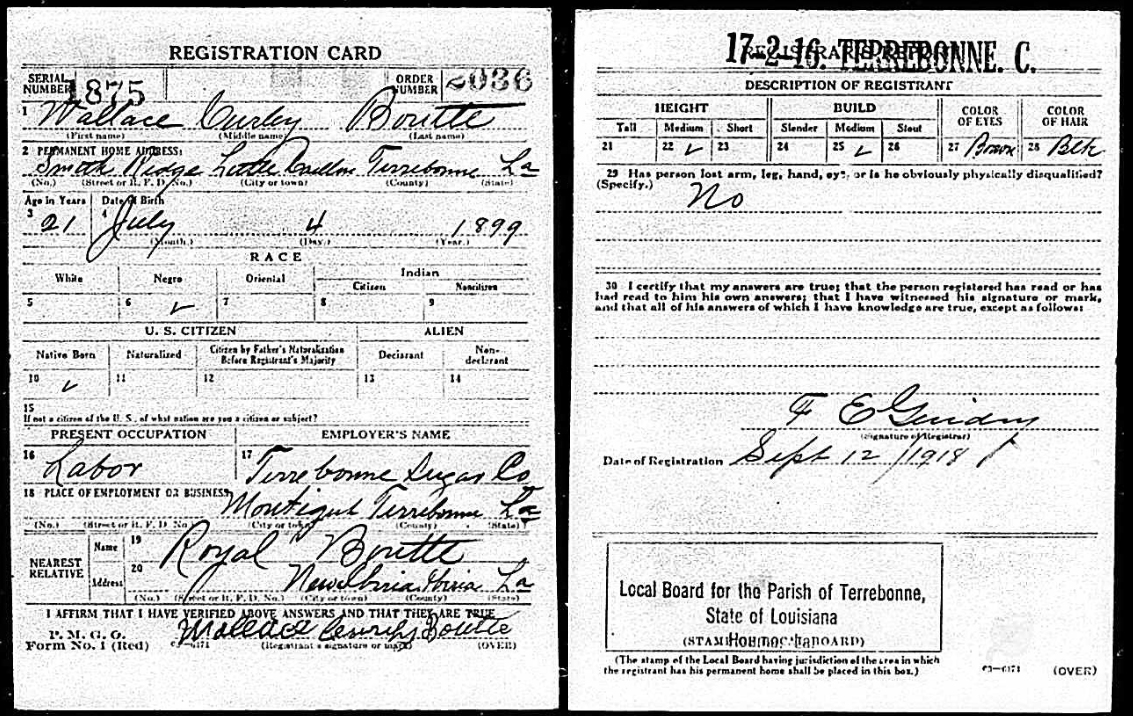 REGISTRATION CARD
SERIAL NUMBER 1875 ORDER NUMBER 2036
1 Wallace Curley Boutte
(First name) (Middle name) (Last name)
2 PERMANENT HOME ADDRESS:
Smith Ridge Little Caillou Terrebonne La
(No.) (Street or R. F. D. No.) (City or town) (County) (State)
Age in Years Date of Birth
3 21 4 July 4 1899
(Month.) (Day.) (Year.)
RACE
White Negro Oriental Indian
Citizen Noncitizen
5 6 ✓ 7 8 9
U. S. CITIZEN ALIEN
Native Born Naturalized Citizen by Father's Naturalization Before Registrant's Majority Declarant Non-declarant
10 ✓ 11 12 13 14
15
If not a citizen of the U. S., of what nation are you a citizen or subject?
PRESENT OCCUPATION EMPLOYER'S NAME
16 Labor 17 Terrebonne Sugar Co
18 PLACE OF EMPLOYMENT OR BUSINESS:
Montigut Terrebonne La
(No.) (Street or R. F. D. No.) (City or town) (County) (State)
NEAREST RELATIVE
Name 19 Royal Boutte
Address 20 New Iberia Iberia La
(No.) (Street or R. F. D. No.) (City or town) (County) (State)
I AFFIRM THAT I HAVE VERIFIED ABOVE ANSWERS AND THAT THEY ARE TRUE
P. M. G. O.
Form No. 1 (Red) Wallace Boutte
(Registrant's signature or mark) (OVER)
17-2-16. TERREBONNE. C.
DESCRIPTION OF REGISTRANT
HEIGHT BUILD COLOR OF EYES COLOR OF HAIR
Tall Medium Short Slender Medium Stout
21 22 ✓ 23 24 25 ✓ 26 27 Brown 28 Blk
29 Has person lost arm, leg, hand, eye, or is he obviously physically disqualified?
(Specify.) No
30 I certify that my answers are true; that the person registered has read or has
had read to him his own answers; that I have witnessed his signature or mark,
and that all of his answers of which I have knowledge are true, except as follows:
F E Guidry
(Signature of Registrar)
Date of Registration Sept 12 / 1918
Local Board for the Parish of Terrebonne,
State of Louisiana
Houma, La.
(STAMP OF LOCAL BOARD)
(The stamp of the Local Board having jurisdiction of the area in which
the registrant has his permanent home shall be placed in this box.)
03-6171 (OVER)